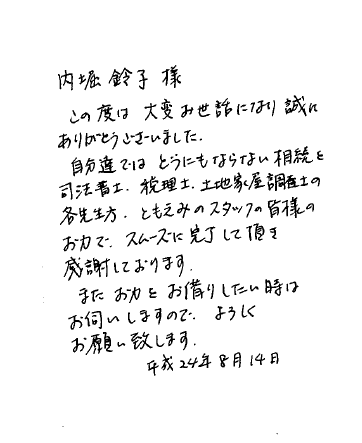 内堀 鈴子 様
この度は 大変お世話になり 誠に
ありがとうございました.
自分達では どうにもならない相続を
司法書士、税理士、土地家屋調査士の
各先生方、ともえみのスタッフの皆様の
お力で、スムーズに完了して頂き
感謝しております.
また お力を お借りしたい時は
お伺いしますので、よろしく
お願い致します.
平成24年8月14日